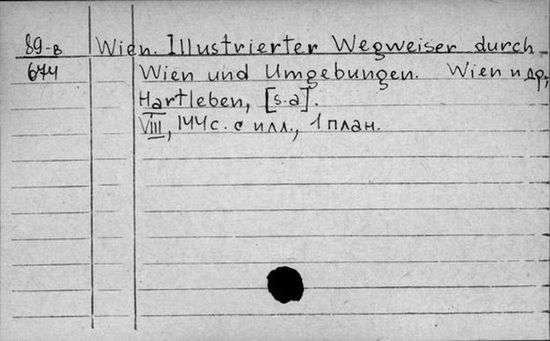 89-в Wien. Illustrierter Wegweiser durch
674 Wien und Umgebungen. Wien и др,
Hartleben, [s.a].
VIII, 144 с. с илл., 1 план.